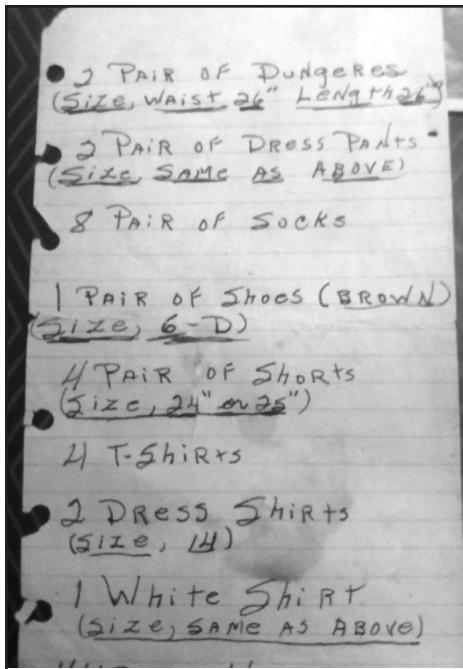 2 PAIR OF DUNGERES
(SIZE, WAIST 26" LENGTH 26")
2 PAIR OF DRESS PANTS
(SIZE SAME AS ABOVE)
8 PAIR OF SOCKS
1 PAIR OF SHOES (BROWN)
(SIZE, 6-D)
4 PAIR OF SHORTS
(SIZE, 24" or 25")
4 T-SHIRTS
2 DRESS SHIRTS
(SIZE, 14)
1 WHITE SHIRT
(SIZE, SAME AS ABOVE)